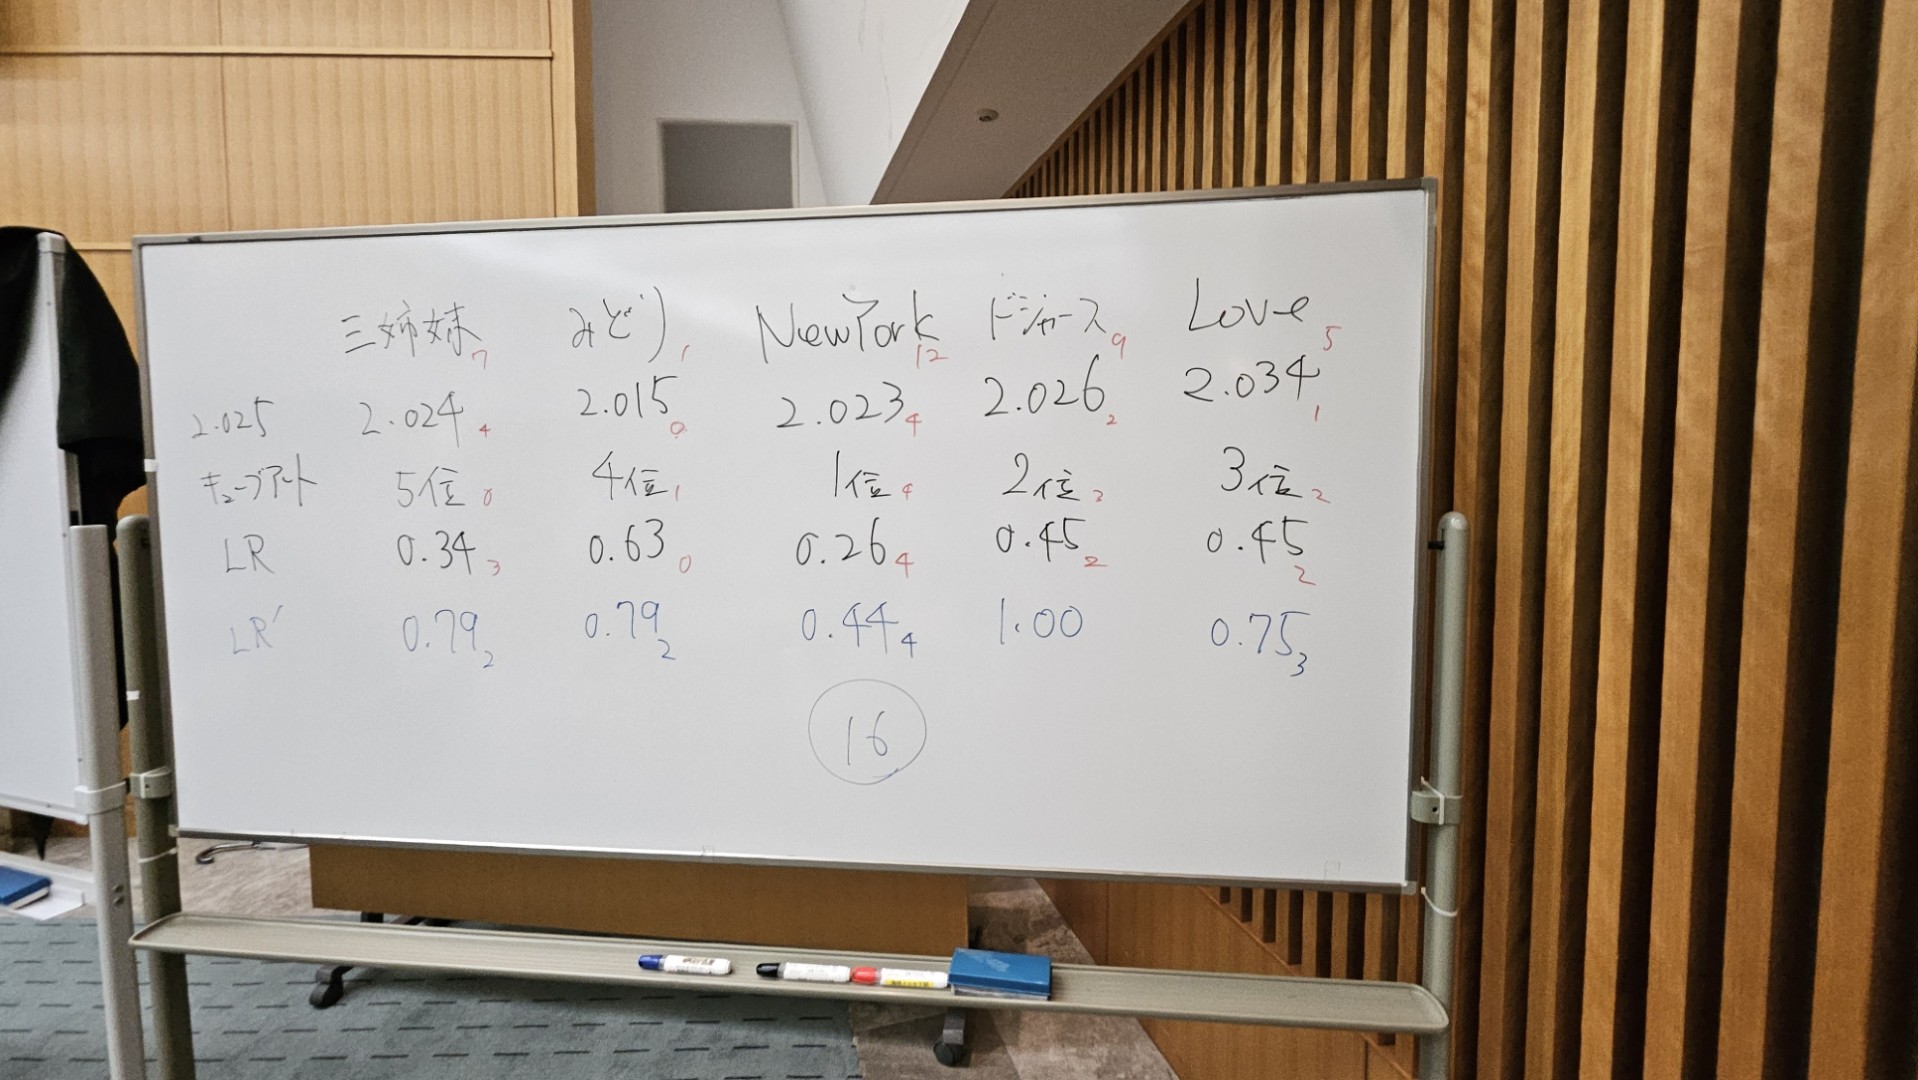 三姉妹 7 みどり 1 NewYork 12 ドジャース 9 Love 5
2.025 2.024 4 2.015 0 2.023 4 2.026 2 2.034 1
キューブアート 5位 0 4位 1 1位 4 2位 3 3位 2
LR 0.34 3 0.63 0 0.26 4 0.45 2 0.45 2
LR' 0.79 2 0.79 2 0.44 4 1.00 0.75 3
16